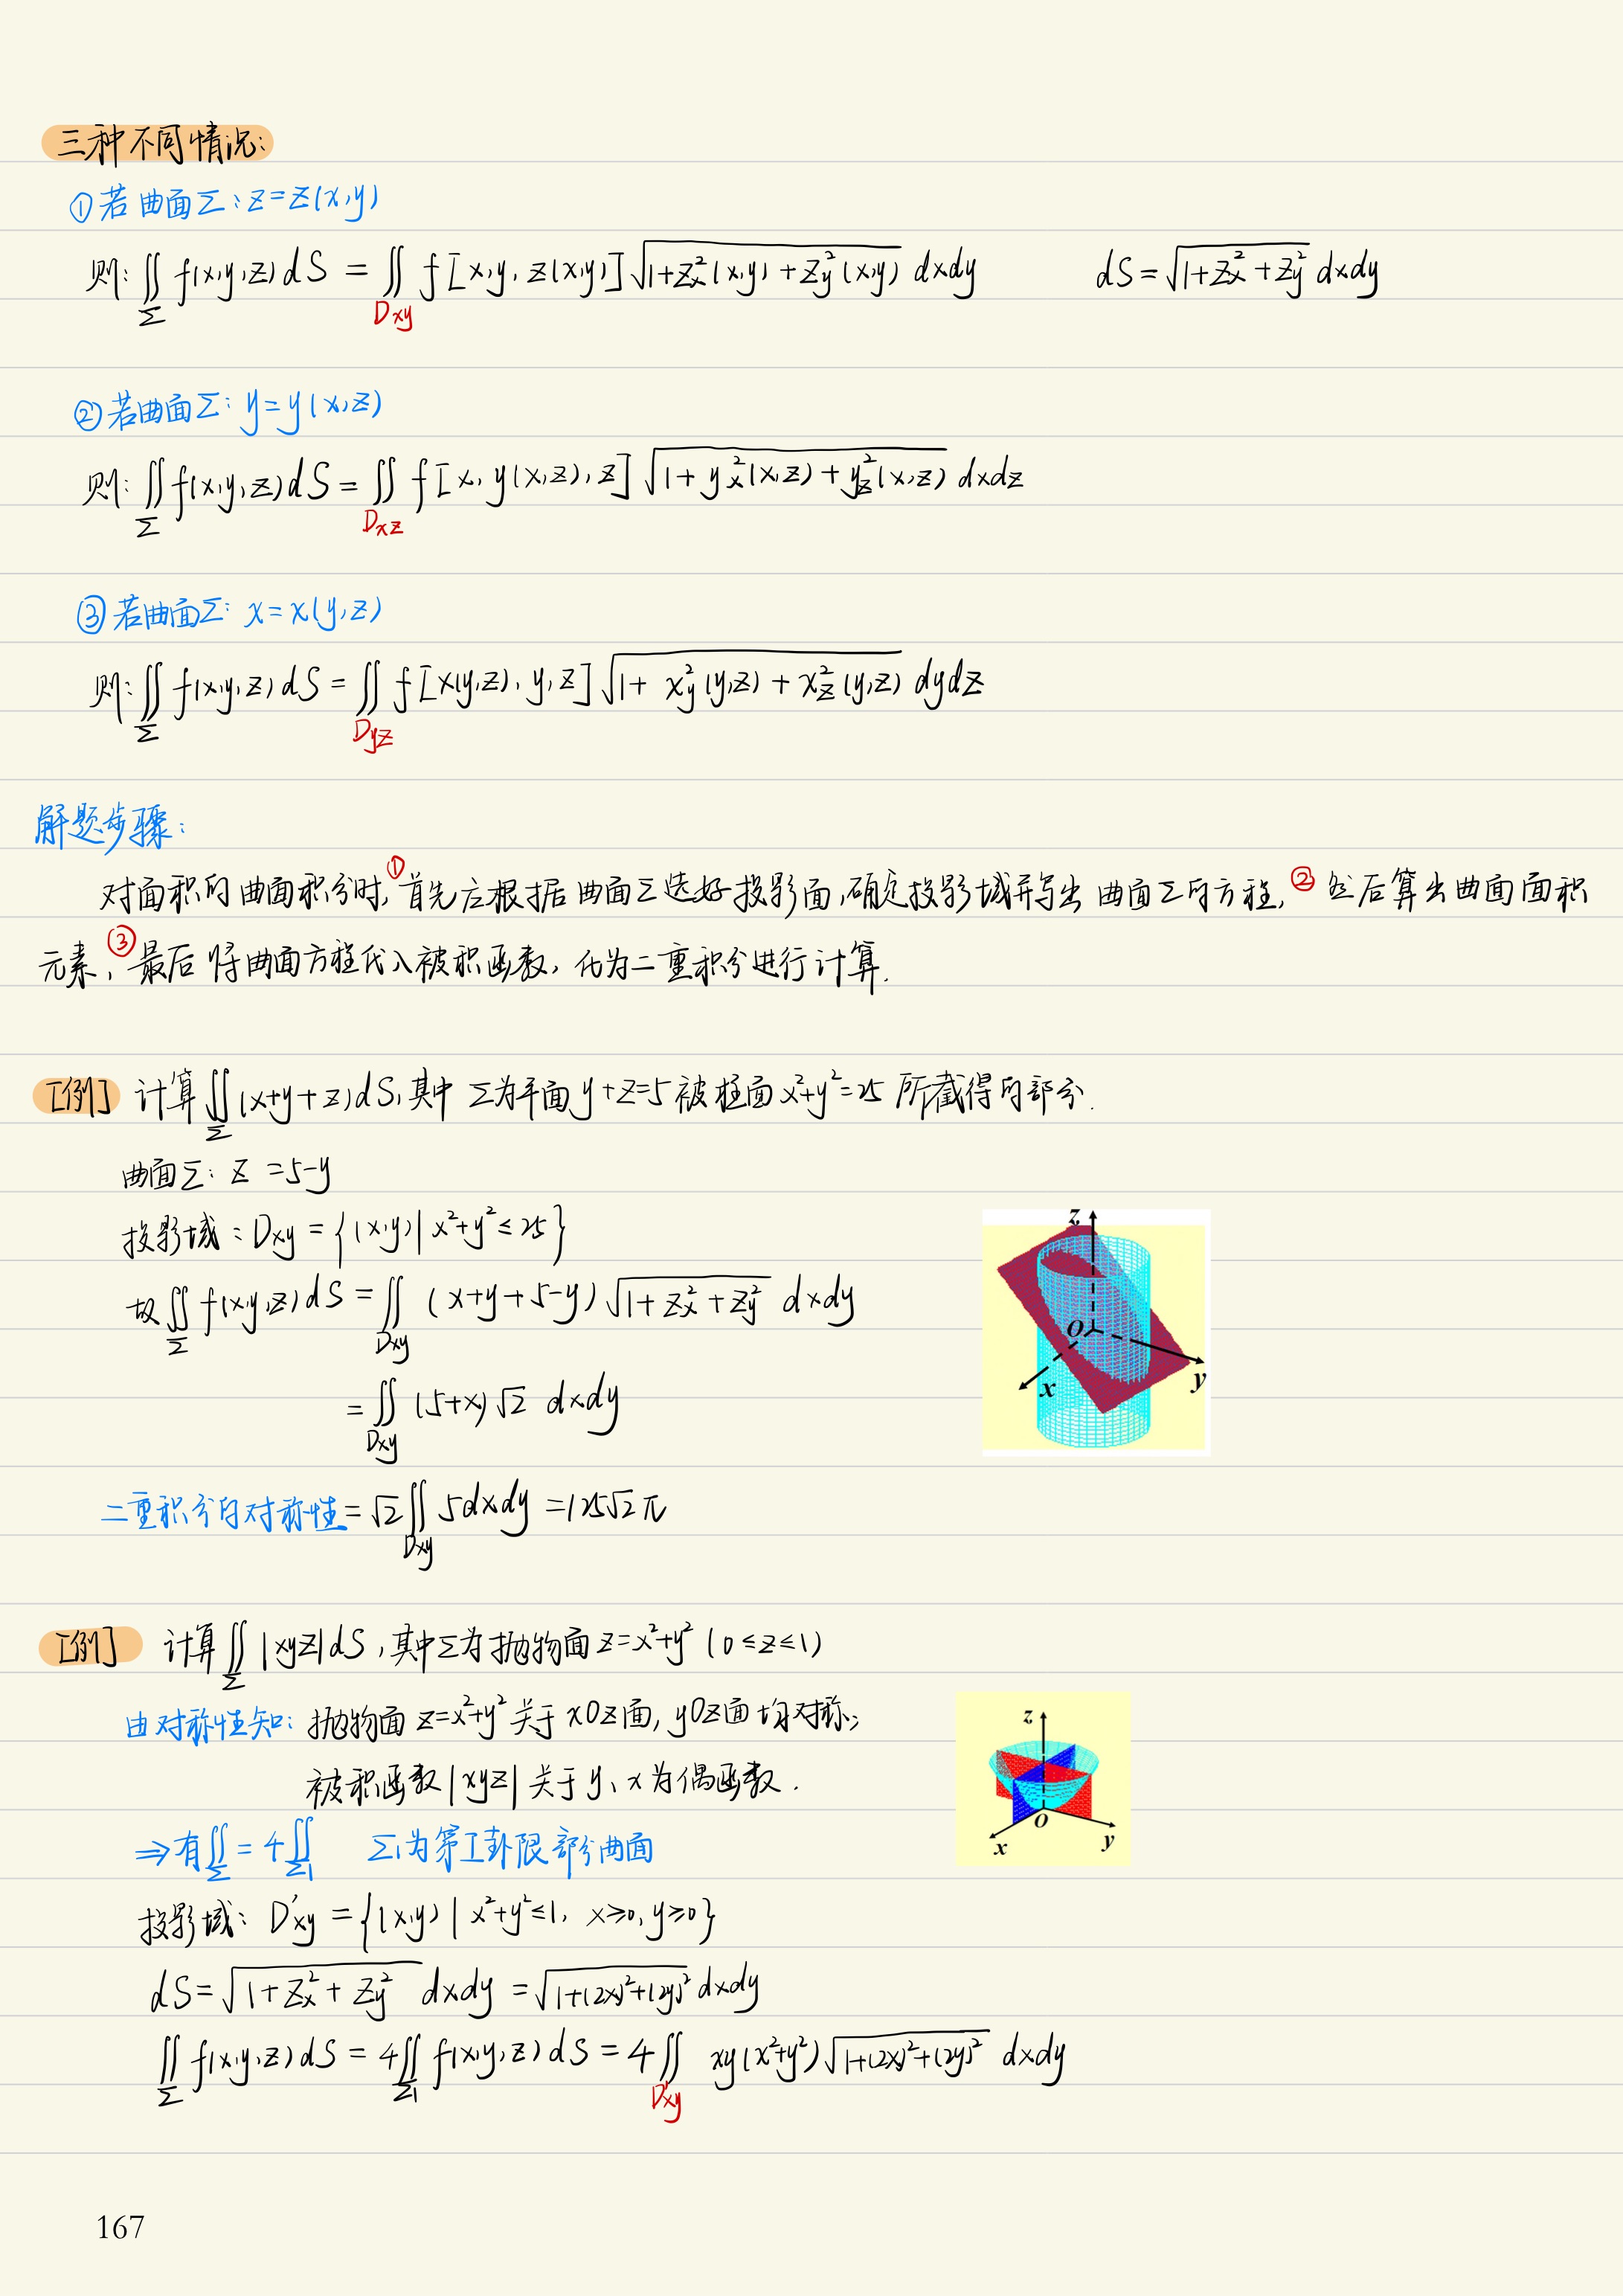 三种不同情况:
①若曲面Σ:z=z(x,y)
则:∬_Σ f(x,y,z)dS = ∬_{Dxy} f[x,y,z(x,y)]√(1+z_x²(x,y)+z_y²(x,y)) dxdy dS=√(1+z_x²+z_y²) dxdy
②若曲面Σ: y=y(x,z)
则:∬_Σ f(x,y,z)dS=∬_{Dxz} f[x,y(x,z),z]√(1+y_x²(x,z)+y_z²(x,z)) dxdz
③若曲面Σ: x=x(y,z)
则:∬_Σ f(x,y,z)dS=∬_{Dyz} f[x(y,z),y,z]√(1+x_y²(y,z)+x_z²(y,z)) dydz
解题步骤:
对面积的曲面积分时,①首先应根据曲面Σ选好投影面,确定投影域并写出曲面Σ的方程,②然后算出曲面面积
元素,③最后将曲面方程代入被积函数,化为二重积分进行计算.
[例] 计算∬_Σ (x+y+z)dS,其中Σ为平面y+z=5被柱面x²+y²=25所截得的部分.
曲面Σ: z=5-y
投影域:Dxy={(x,y)|x²+y²≤25}
故∬_Σ f(x,y,z)dS=∬_{Dxy} (x+y+5-y)√(1+z_x²+z_y²) dxdy
=∬_{Dxy} (5+x)√2 dxdy
二重积分的对称性=√2∬_{Dxy} 5dxdy=125√2π
z
O
x
y
[例] 计算∬_Σ |xyz|dS,其中Σ为抛物面z=x²+y² (0≤z≤1)
由对称性知: 抛物面z=x²+y²关于xOz面,yOz面均对称;
被积函数|xyz|关于y、x为偶函数.
⇒有∬_Σ=4∬_{Σ1} Σ1为第I卦限部分曲面
投影域: D'xy={(x,y)|x²+y²≤1, x≥0,y≥0}
dS=√(1+z_x²+z_y²) dxdy=√(1+(2x)²+(2y)²) dxdy
∬_Σ f(x,y,z)dS=4∬_{Σ1} f(x,y,z)dS=4∬_{D'xy} xy(x²+y²)√(1+(2x)²+(2y)²) dxdy
z
O
x
y
167